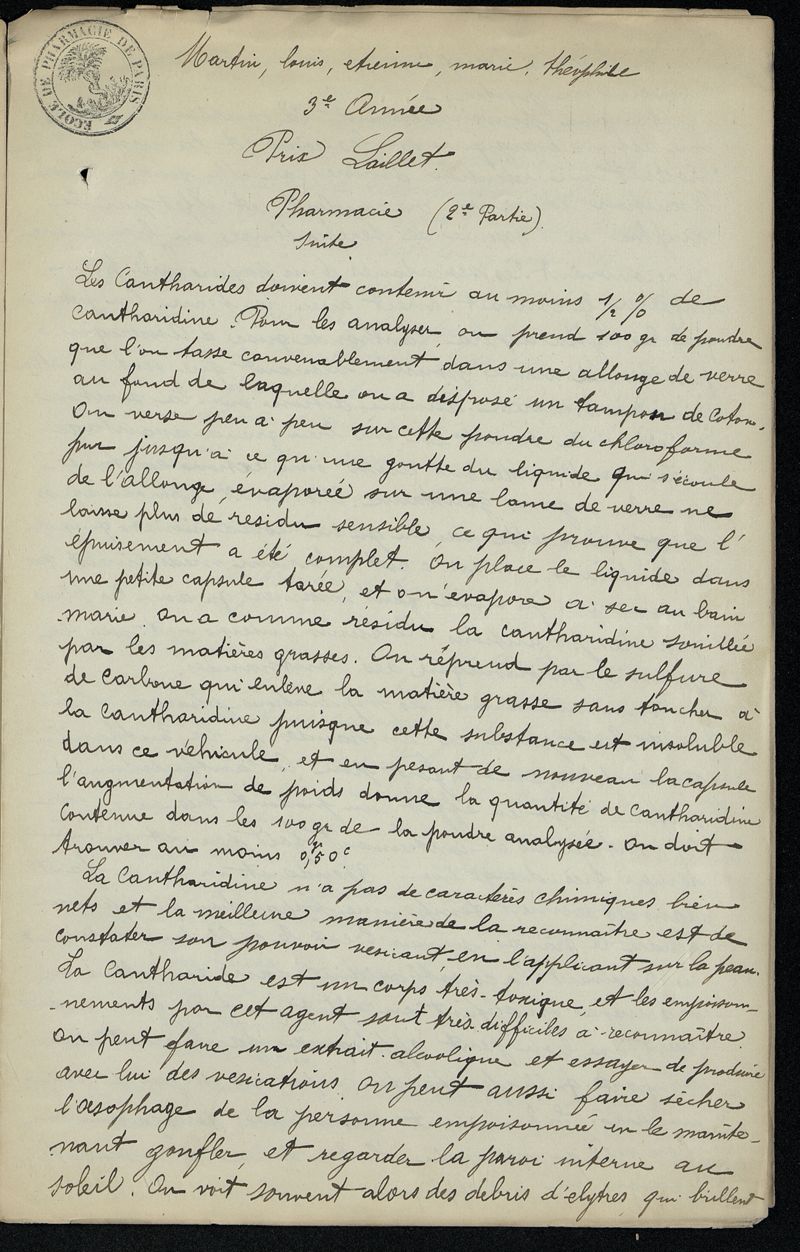 ECOLE DE PHARMACIE DE PARIS
Martin, louis, etienne, marie, théophile
3e Année
Prix Laillet.
Pharmacie (2e Partie).
Suite
Les Cantharides doivent contenir au moins 1/2 % de
Cantharidine. Pour les analyser, on prend 100 gr de poudre
que l'on tasse convenablement dans une allonge de verre
au fond de laquelle on a disposé un tampon de coton.
On verse peu à peu sur cette poudre du chloroforme
pur jusqu'à ce qu'une goutte du liquide qui s'écoule
de l'allonge, évaporée sur une lame de verre ne
laisse plus de résidu sensible, ce qui prouve que l'
épuisement a été complet. On place le liquide dans
une petite capsule tarée, et on évapore à sec au bain
marie. On a comme résidu la cantharidine souillée
par les matières grasses. On réprend par le sulfure
de Carbone qui enlève la matière grasse sans toucher à
la Cantharidine puisque cette substance est insoluble
dans ce véhicule, et en pesant de nouveau la capsule
l'augmentation de poids donne la quantité de Cantharidine
Contenue dans les 100 gr de la poudre analysée. On doit
trouver au moins 0gr,50c
La Cantharidine n'a pas de caractères chimiques bien
nets et la meilleure manière de la reconnaître est de
constater son pouvoir vesicant, en l'appliquant sur la peau.
La Cantharide est un corps très-toxique, et les empoison-
-nements par cet agent sont très-difficiles à reconnaître.
On peut faire un extrait alcoolique et essayer de produire
avec lui des vesications. On peut aussi faire sècher
l'œsophage de la personne empoisonnée en le mainte-
nant gonfler, et regarder la paroi interne au
soleil. On voit souvent alors des debris d'elytres, qui brillent